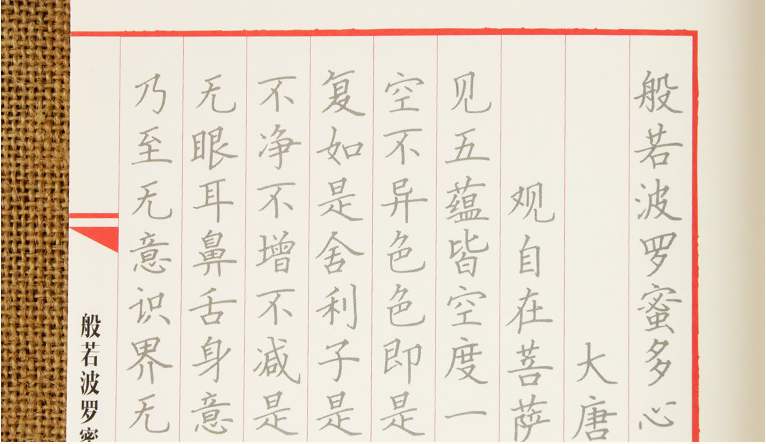 般若波罗蜜多心
大唐
观自在菩萨
见五蕴皆空度一
空不异色色即是
复如是舍利子是
不净不增不减是
无眼耳鼻舌身意
乃至无意识界无
般若波罗蜜